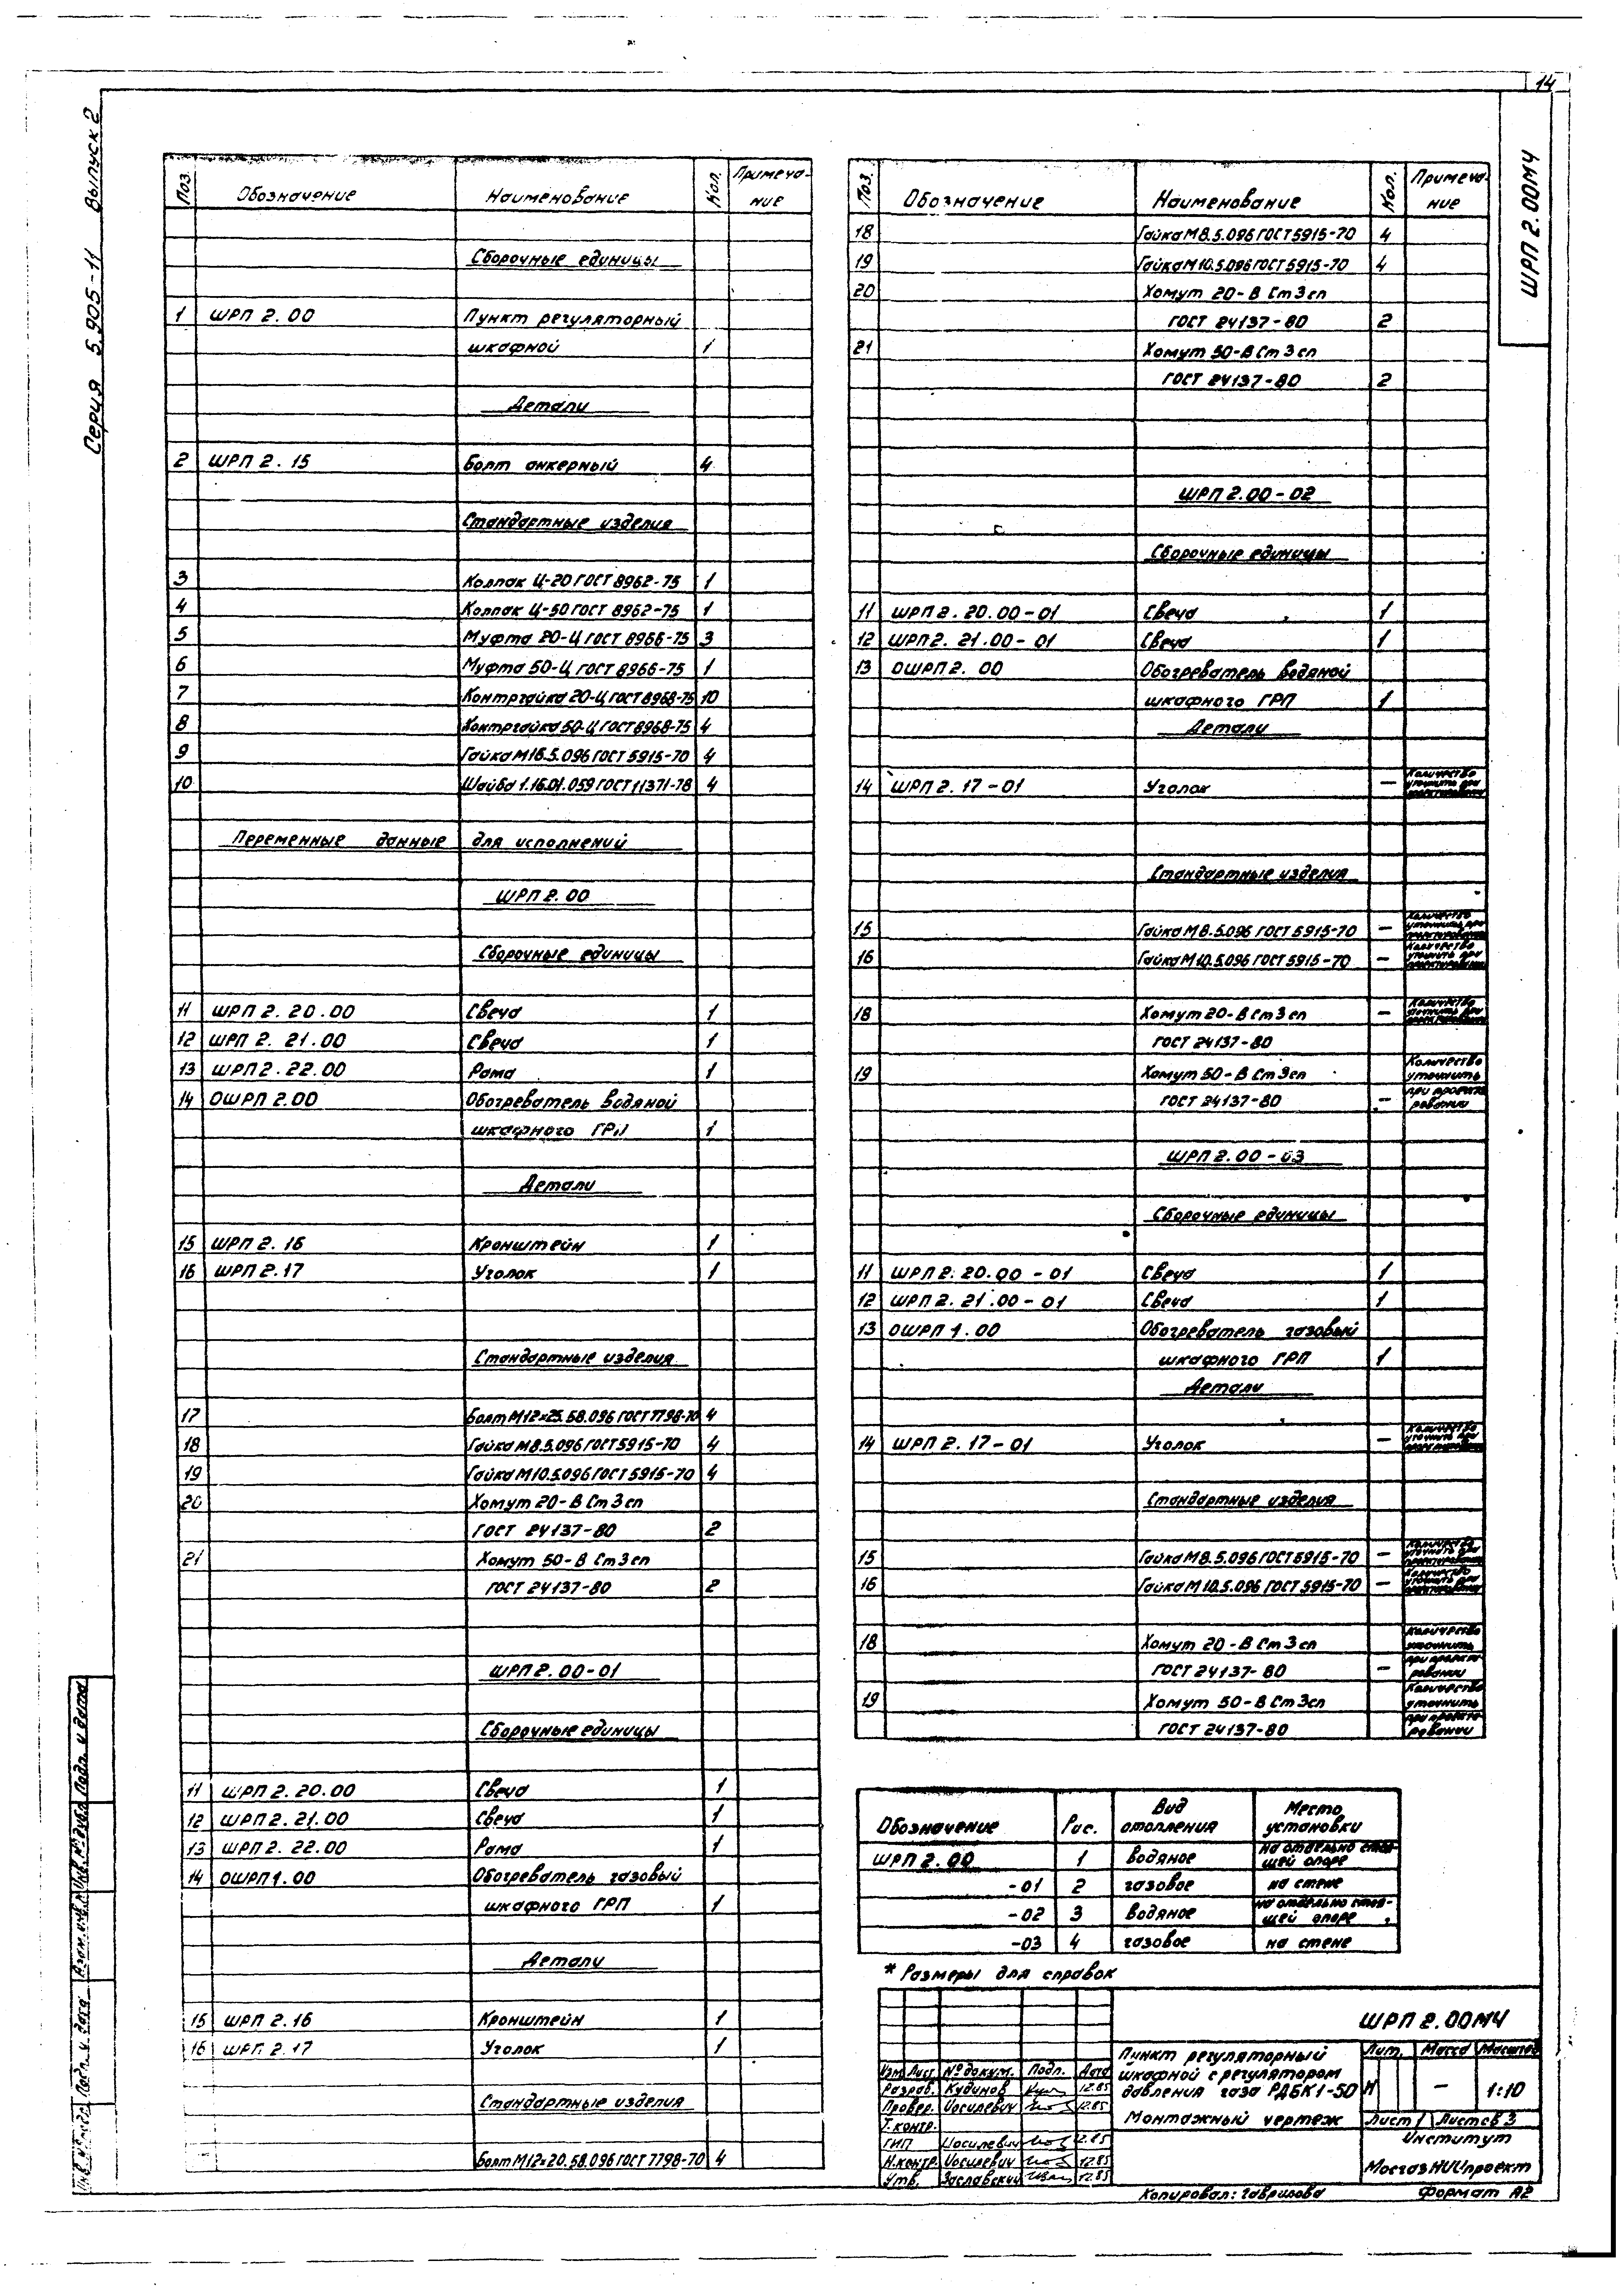 14
Серия 5.905-11 Выпуск 2
ШРП 2.00МЧ
Поз. Обозначение Наименование Кол. Примеча-
ние
Сборочные единицы
1 ШРП 2.00 Пункт регуляторный
шкафной 1
Детали
2 ШРП 2.15 Болт анкерный 4
Стандартные изделия
3 Колпак Ц-20 ГОСТ 8962-75 1
4 Колпак Ц-50 ГОСТ 8962-75 1
5 Муфта 20-Ц ГОСТ 8966-75 3
6 Муфта 50-Ц ГОСТ 8966-75 1
7 Контргайка 20-Ц ГОСТ 8968-75 10
8 Контргайка 50-Ц ГОСТ 8968-75 4
9 Гайка М16.5.096 ГОСТ 5915-70 4
10 Шайба 1.16.01.059 ГОСТ 11371-78 4
Переменные данные для исполнений
ШРП 2.00
Сборочные единицы
11 ШРП 2.20.00 Свеча 1
12 ШРП 2.21.00 Свеча 1
13 ШРП 2.22.00 Рама 1
14 ОШРП 2.00 Обогреватель водяной
шкафного ГРП 1
Детали
15 ШРП 2.16 Кронштейн 1
16 ШРП 2.17 Уголок 1
Стандартные изделия
17 Болт М12×25.58.096 ГОСТ 7798-70 4
18 Гайка М8.5.096 ГОСТ 5915-70 4
19 Гайка М10.5.096 ГОСТ 5915-70 4
20 Хомут 20-В Ст3сп
ГОСТ 24137-80 2
21 Хомут 50-В Ст3сп
ГОСТ 24137-80 2
ШРП 2.00-01
Сборочные единицы
11 ШРП 2.20.00 Свеча 1
12 ШРП 2.21.00 Свеча 1
13 ШРП 2.22.00 Рама 1
14 ОШРП 1.00 Обогреватель газовый
шкафного ГРП 1
Детали
15 ШРП 2.16 Кронштейн 1
16 ШРП 2.17 Уголок 1
Стандартные изделия
Болт М12×20.58.096 ГОСТ 7798-70 4
Поз. Обозначение Наименование Кол. Примеча-
ние
18 Гайка М8.5.096 ГОСТ 5915-70 4
19 Гайка М10.5.096 ГОСТ 5915-70 4
20 Хомут 20-В Ст3сп
ГОСТ 24137-80 2
21 Хомут 50-В Ст3сп
ГОСТ 24137-80 2
ШРП 2.00-02
Сборочные единицы
11 ШРП 2.20.00-01 Свеча 1
12 ШРП 2.21.00-01 Свеча 1
13 ОШРП 2.00 Обогреватель водяной
шкафного ГРП 1
Детали
14 ШРП 2.17-01 Уголок – Количество уточнить при проектировании
Стандартные изделия
15 Гайка М8.5.096 ГОСТ 5915-70 – Количество уточнить при проектировании
16 Гайка М10.5.096 ГОСТ 5915-70 – Количество уточнить при проектировании
18 Хомут 20-В Ст3сп – Количество уточнить при проектировании
ГОСТ 24137-80
19 Хомут 50-В Ст3сп Количество уточнить
ГОСТ 24137-80 – при проекти-ровании
ШРП 2.00-03
Сборочные единицы
11 ШРП 2.20.00-01 Свеча 1
12 ШРП 2.21.00-01 Свеча 1
13 ОШРП 1.00 Обогреватель газовый
шкафного ГРП 1
Детали
14 ШРП 2.17-01 Уголок – Количество уточнить при проектировании
Стандартные изделия
15 Гайка М8.5.096 ГОСТ 5915-70 – Количество уточнить при проектировании
16 Гайка М10.5.096 ГОСТ 5915-70 – Количество уточнить при проектировании
18 Хомут 20-В Ст3сп Количество уточнить
ГОСТ 24137-80 – при проекти-ровании
19 Хомут 50-В Ст3сп Количество уточнить
ГОСТ 24137-80 при проекти-ровании
Обозначение Рис. Вид отопления Место установки
ШРП 2.00 1 водяное на отдельно стоя-щей опоре
-01 2 газовое на стене
-02 3 водяное на отдельно стоя-щей опоре
-03 4 газовое на стене
* Размеры для справок
ШРП 2.00МЧ
Пункт регуляторный
шкафной с регулятором
давления газа РДБК1-50
Монтажный чертеж
Лит. Масса Масштаб
И – 1:10
Лист 1 Листов 3
Институт
МосгазНИИпроект
Изм. Лист № докум. Подп. Дата
Разраб. Кудинов 12.85
Провер. Иосилевич 12.85
Т.контр.
ГИП Иосилевич 12.85
Н.контр. Иосилевич 12.85
Утв. Заславский 12.85
Копировал: Гаврилова Формат А2
Инв. № подл. Подп. и дата Взам. инв. № Инв. № дубл. Подп. и дата